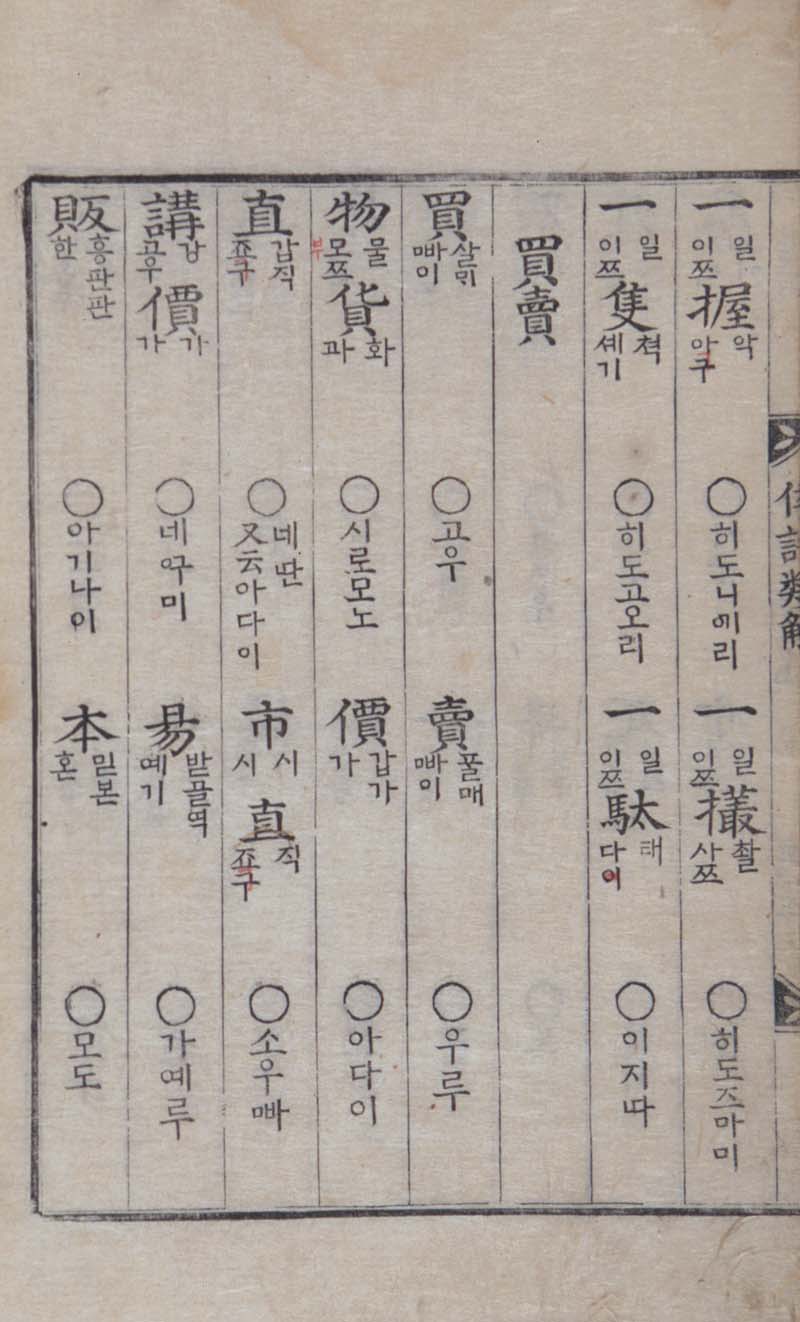 倭語類解
一 일 이쯔 握 악 아구 ○ 一 일 이쯔 撮 촬 사쯔 ○히도즈마미
一 일 이쯔 隻 쳑 셰기 ○히도고오리 一 일 이쯔 駄 태 다이 ○이지따
買賣
買 살ᄆᆡ 빠이 ○고우 賣 ᄑᆞᆯ매 빠이 ○우루
物 물 모쯔 부 貨 화 과 ○시로모노 價 갑가 가 ○아다이
直 갑직 죠구 ○네딴 又云아다이 市 시 시 直 직 죠구 ○소우빠
講 강 고우 價 가 가 ○ 易 받골역 예기 ○가예루
販 흥판판 한 ○아기나이 本 믿본 혼 ○모도